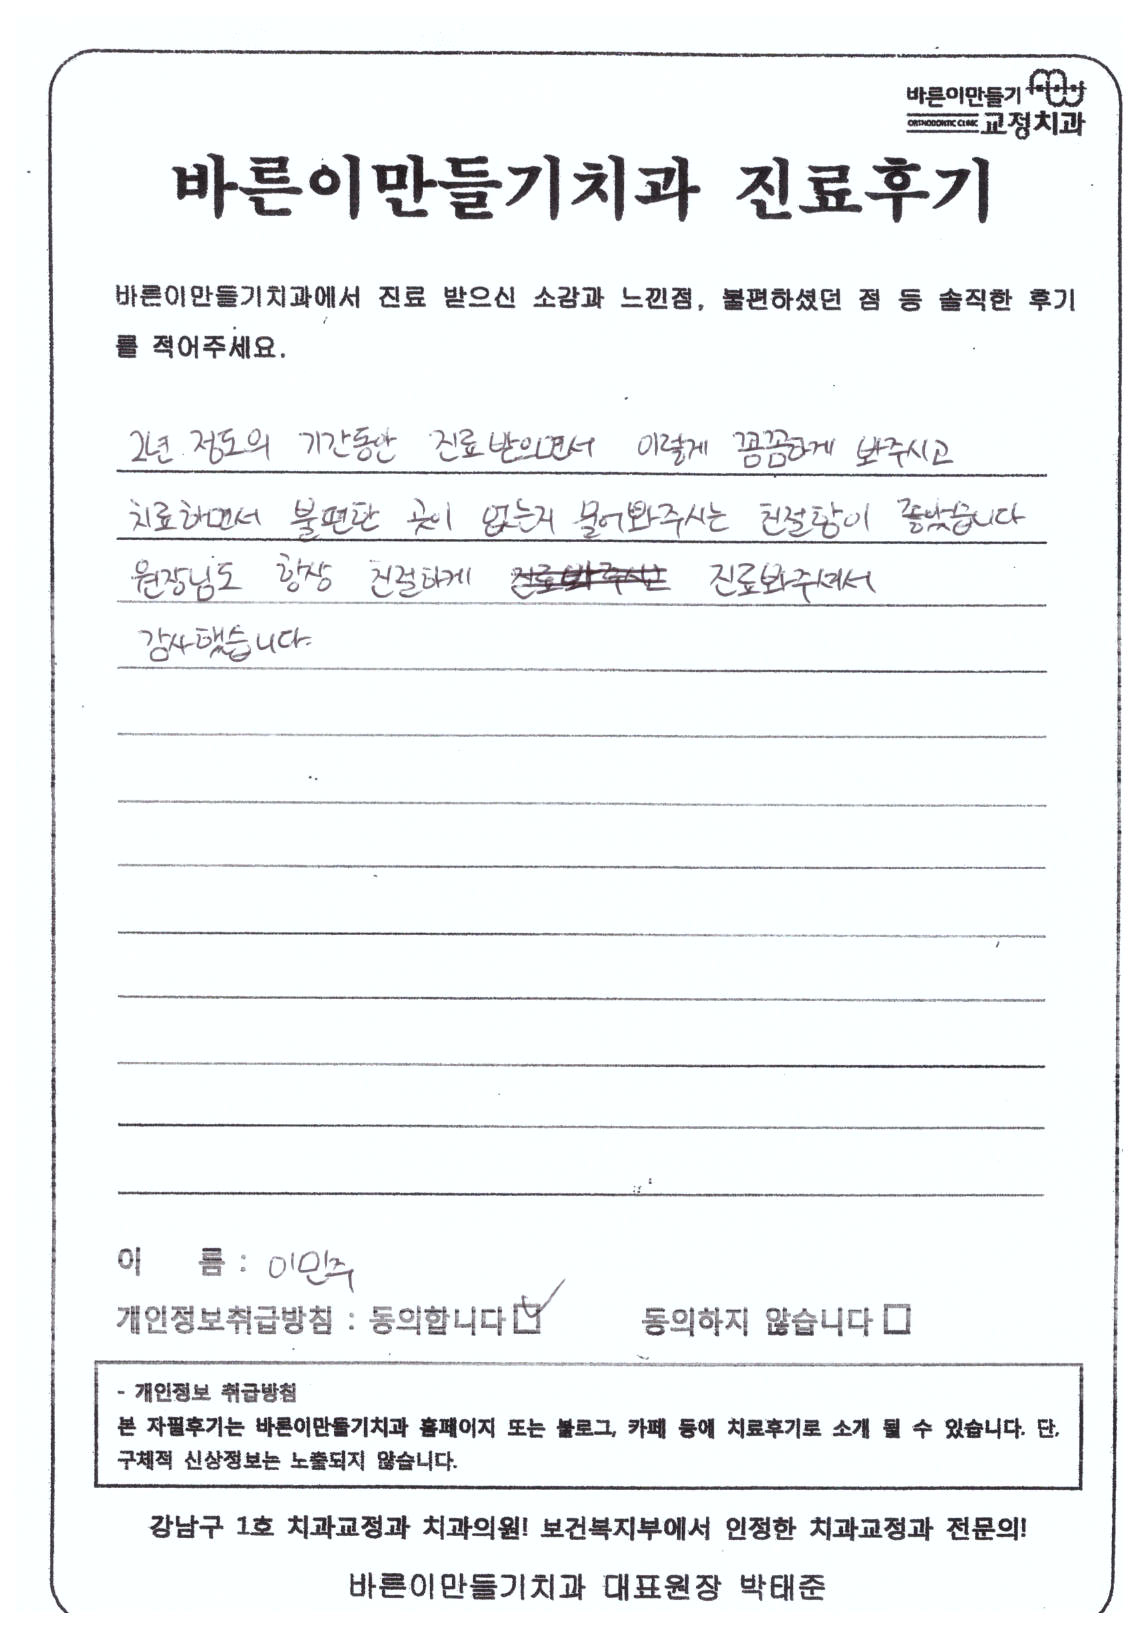 바른이만들기
ORTHODONTIC CLINIC 교정치과
바른이만들기치과 진료후기
바른이만들기치과에서 진료 받으신 소감과 느낀점, 불편하셨던 점 등 솔직한 후기
를 적어주세요.
2년 정도의 기간동안 진료받으면서 이렇게 꼼꼼하게 봐주시고
치료하면서 불편한 곳이 없는지 물어봐주시는 친절함이 좋았습니다
원장님도 항상 친절하게 진료봐주셔서
감사했습니다.
이 름 : 이민주
개인정보취급방침 : 동의합니다 동의하지 않습니다
- 개인정보 취급방침
본 자필후기는 바른이만들기치과 홈페이지 또는 블로그, 카페 등에 치료후기로 소개 될 수 있습니다. 단,
구체적 신상정보는 노출되지 않습니다.
강남구 1호 치과교정과 치과의원! 보건복지부에서 인정한 치과교정과 전문의!
바른이만들기치과 대표원장 박태준